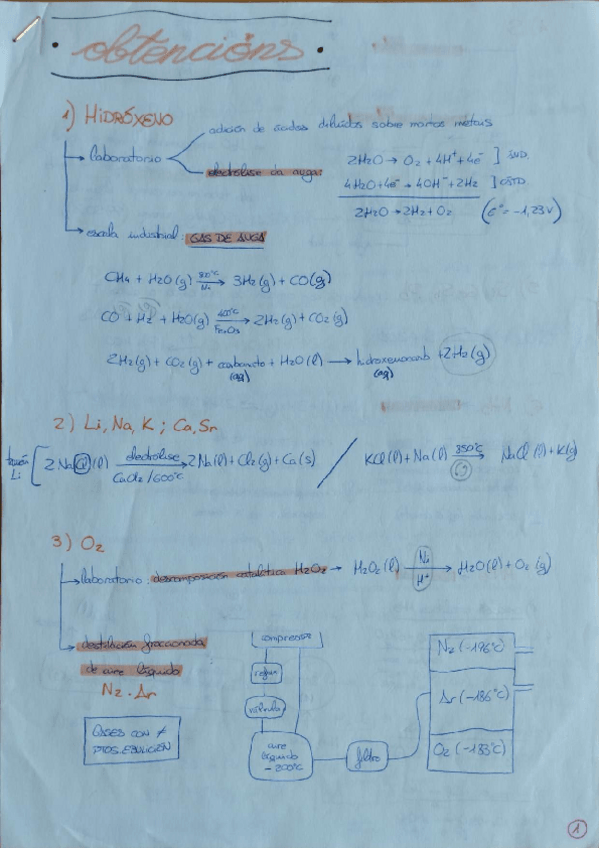 obtencións
1) HIDRÓXENO
adición de ácidos diluidos sobre metais
laboratorio
electrólise da auga:
2H₂O → O₂ + 4H⁺ + 4e⁻ ]
4H₂O + 4e⁻ → 4OH⁻ + 2H₂ ]
2H₂O → 2H₂ + O₂ (ε° = -1,23V)
escala industrial: GAS DE AUGA
CH₄ + H₂O (g) 800°C Ni → 3H₂ (g) + CO (g)
CO + H₂ + H₂O (g) 400°C Fe₂O₃ → 2H₂ (g) + CO₂ (g)
2H₂ (g) + CO₂ (g) + carbonato (aq) + H₂O (l) → hidroxenocarb (aq) + 2H₂ (g)
2) Li, Na, K ; Ca, Sr
tamén Li [ 2 NaCl (l) electrólise CaCl₂ / 600°C → 2Na (l) + Cl₂ (g) + Ca (s) / KCl (l) + Na (l) 850°C → NaCl (l) + K (g)
3) O₂
laboratorio: descomposición catalítica H₂O₂ → H₂O₂ (l) Ni H⁺ → H₂O (l) + O₂ (g)
destilación fraccionada
de aire líquido
N₂ · Ar
GASES CON ≠
PTOS. EBULICIÓN
compresor
válvula
aire
líquido
-200°C
filtro
N₂ (-196°C)
Ar (-186°C)
O₂ (-183°C)
1